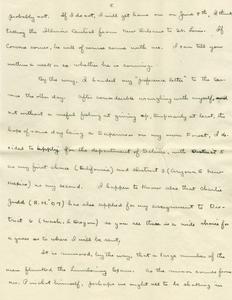 probably not. If I do not, I will get home on or June 9th, I think
taking the Illinois Central from New Orleans to St. Louis. If
Corona comes, he will of course come with me. I can tell you
within a week or so whether he is coming.
By the way, I handed my "preference letter" to the
the other day. After considerable wrangling with myself, and
not without a feeling of giving up, temporarily at least, the
hope of some day being a Supervisor on my own Forest, I de-
cided to apply for the department of Botany, with District 5
as my first choice (California) and District 3 (Arizona & New
Mexico) as my second. I happen to know also that Charlie
Judd (B.H. '07) has also applied for my assignment to Dis-
trict 6 (Wash. & Oregon) so you see there is a wide choice for
a guess as to where I will be sent.
It is rumored, by the way, that a large number of the
men flunked the Lumbering Exam. As the course comes from
me. Pinchot himself, perhaps we ought not to be shaking in